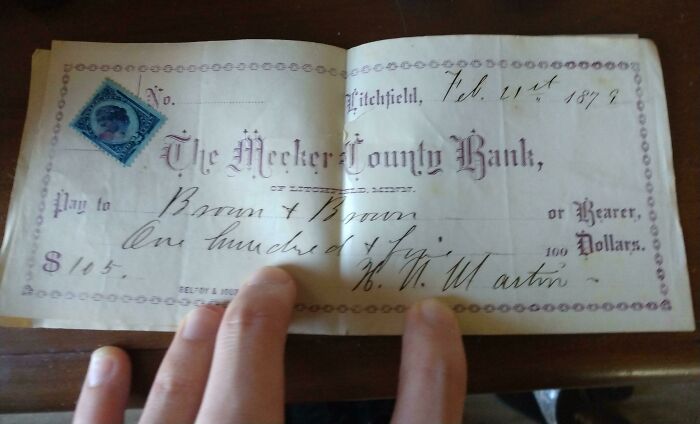 No. Litchfield, Feb. 21st 1879
The Meeker County Bank,
OF LITCHFIELD, MINN.
Pay to Brown & Brown or Bearer,
One hundred & five 100 Dollars.
$ 105. H. N. Martin
BELFOY &